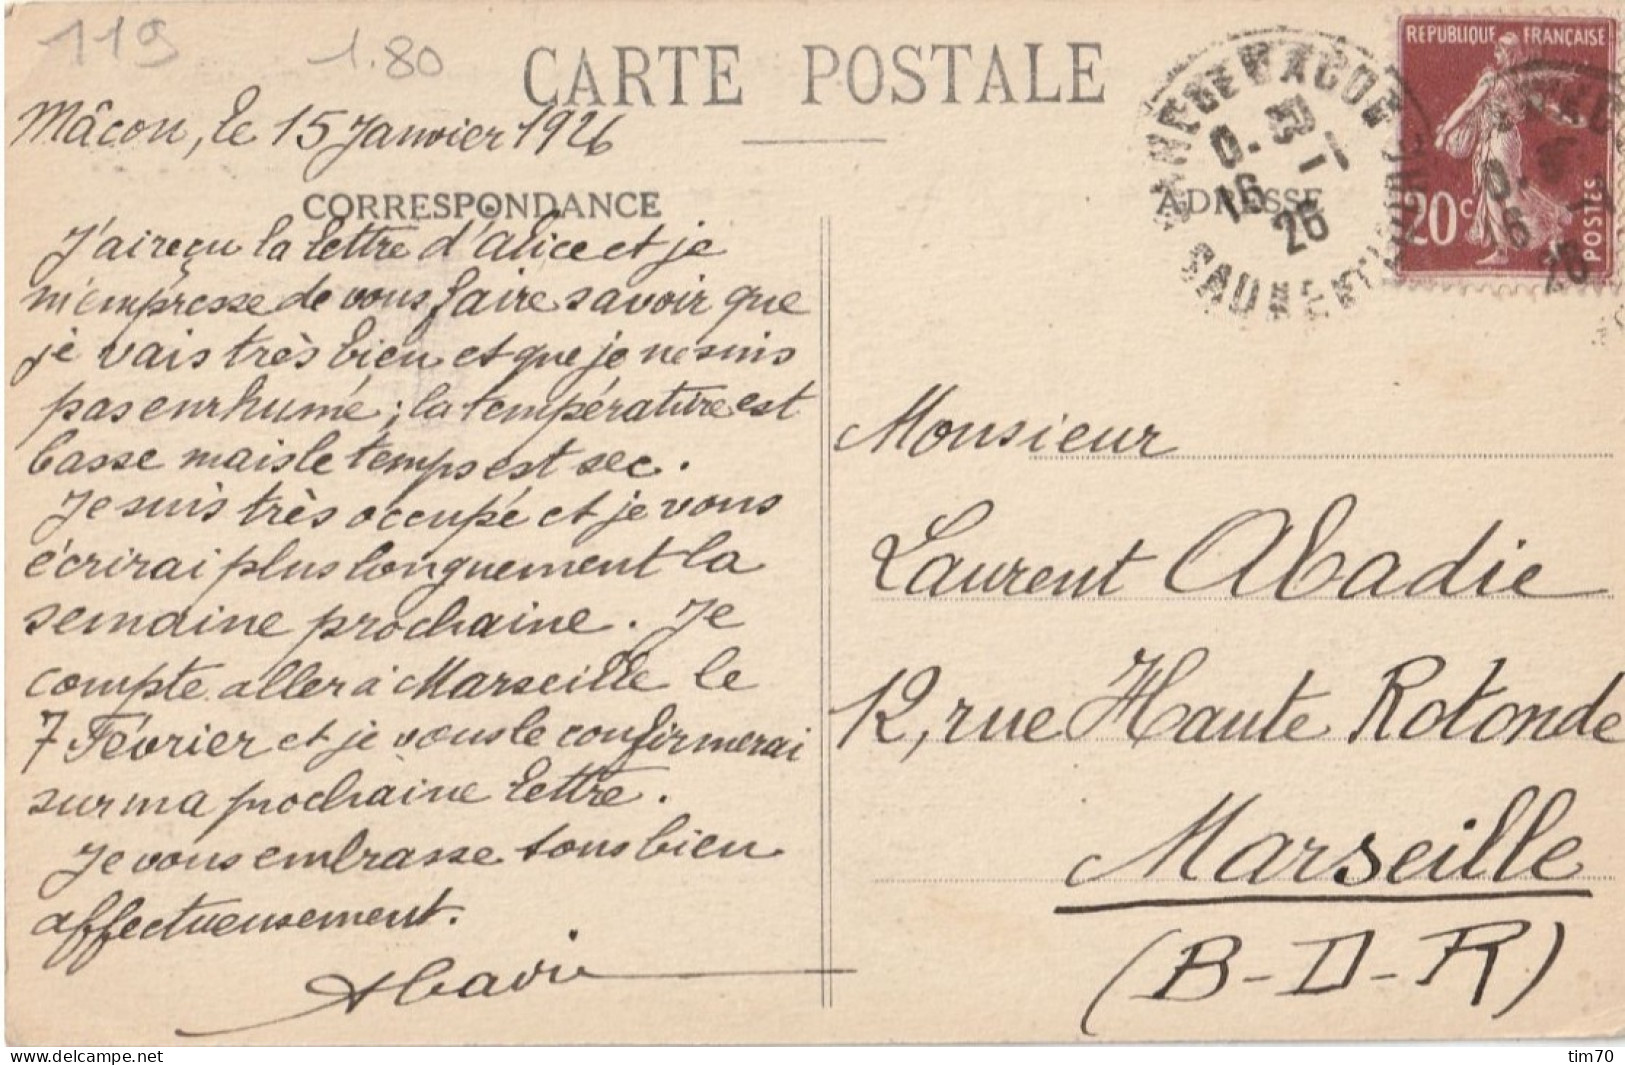 119
1.80
CARTE POSTALE
Mâcon, le 15 Janvier 1926
CORRESPONDANCE
J'ai reçu la lettre d'Alice et je
m'empresse de vous faire savoir que
je vais très bien et que je ne suis
pas enrhumé ; la température est
basse mais le temps est sec.
Je suis très occupé et je vous
écrirai plus longuement la
semaine prochaine. Je
compte aller à Marseille le
7 Février et je vous le confirmerai
sur ma prochaine lettre.
Je vous embrasse tous bien
affectueusement.
Abadie
REPUBLIQUE FRANÇAISE
20c
POSTES
16
26
ADRESSE
Monsieur
Laurent Abadie
12, rue Haute Rotonde
Marseille
(B-D-R)
delcampe.net
tim70